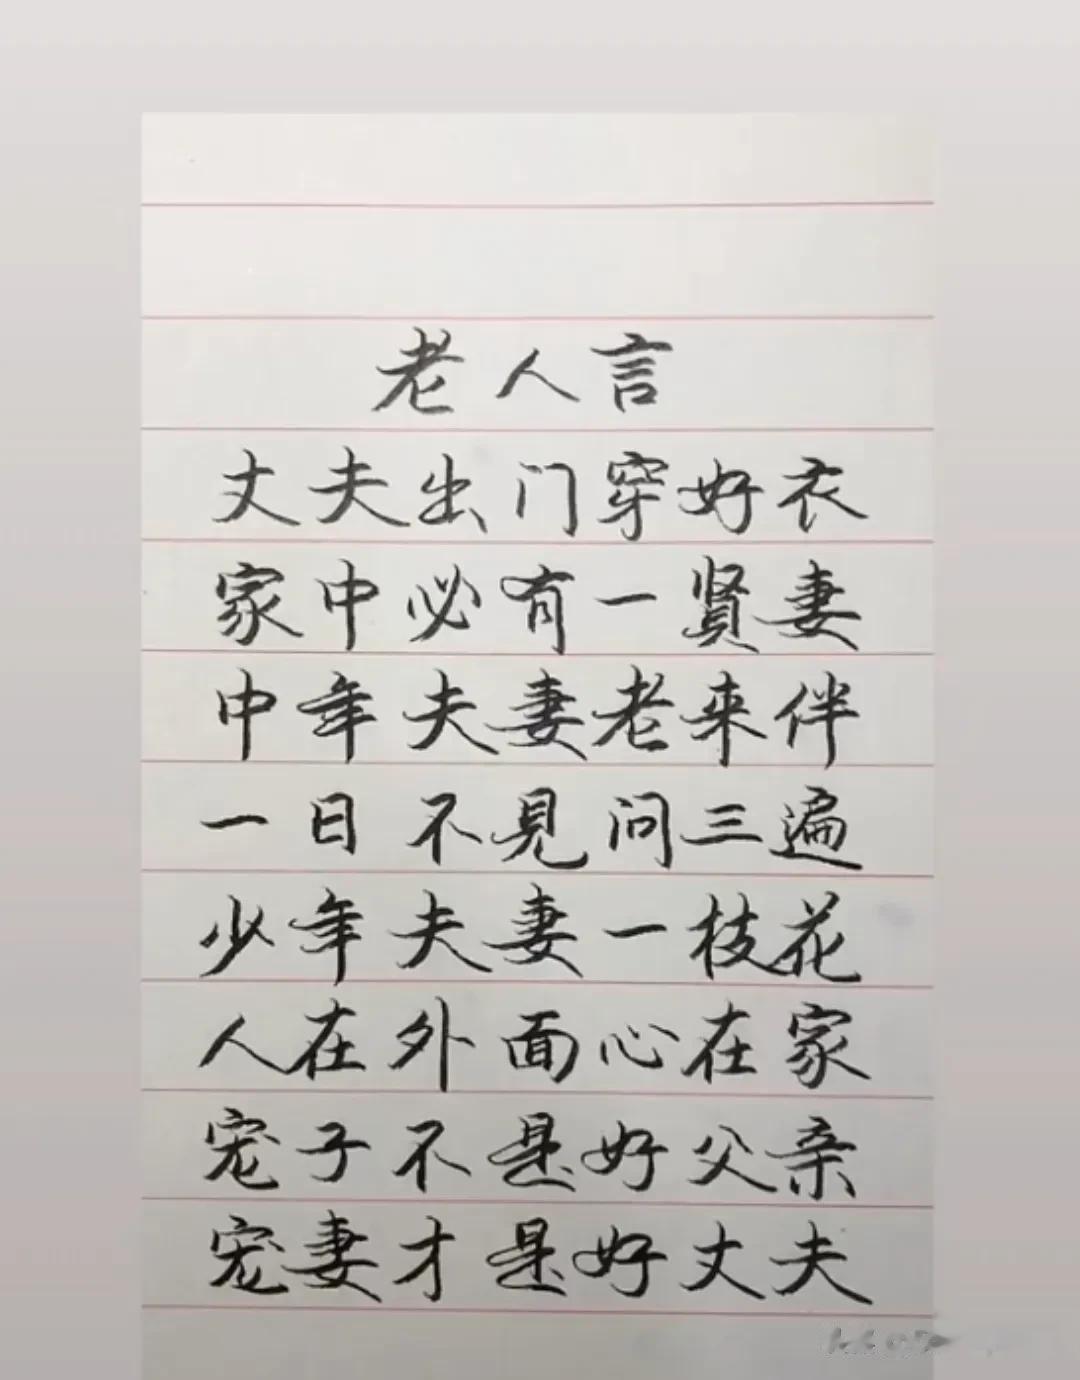 老人言
丈夫出门穿好衣
家中必有一贤妻
中年夫妻老来伴
一日不见问三遍
少年夫妻一枝花
人在外面心在家
宠子不是好父亲
宠妻才是好丈夫